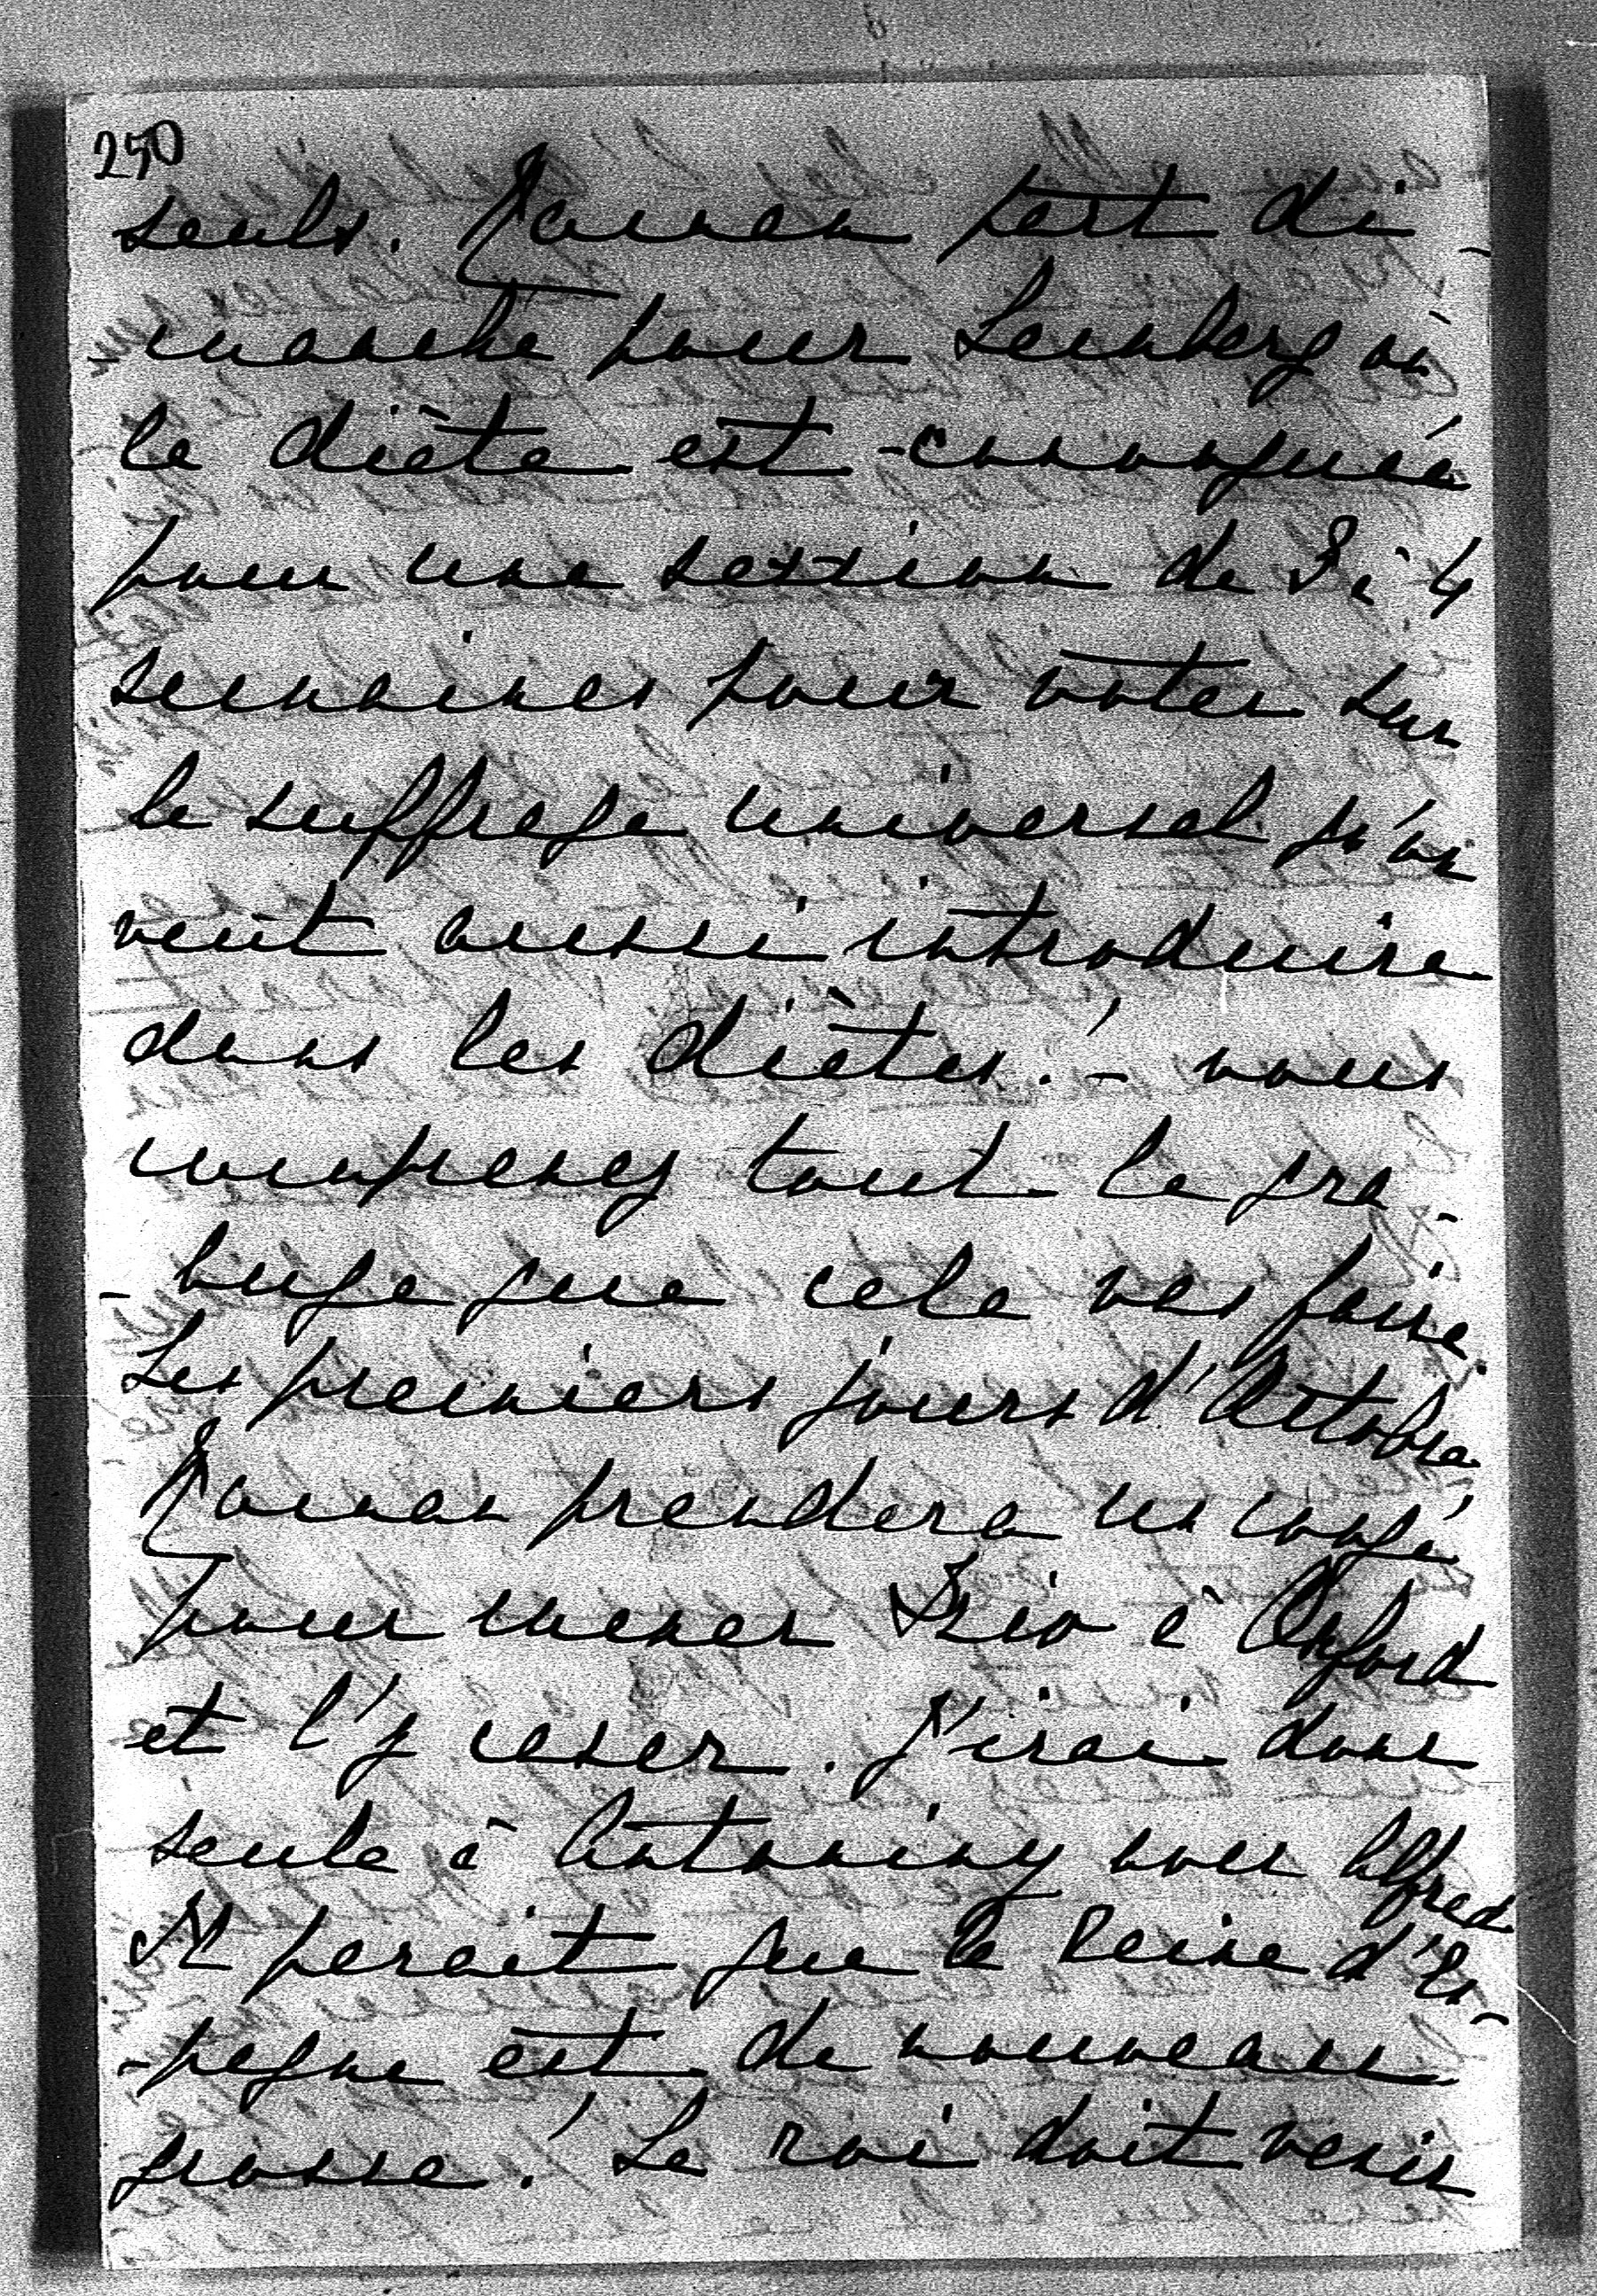 250
seuls. Roman part di-
manche pour Lemberg où
la diète est convoquée
pour une session de 3 à 4
semaines pour voter sur
le suffrage universel qu'on
veut aussi introduire
dans les diètes! - vous
comprenez tout le gra-
-buge que cela vas faire.
Les premiers jours d'Octobre
Roman prendera un congé
pour mener à Oxford
et l'y caser. J'irai donc
seule à Antoniny avec Alfred
Il parait que la Reine d'Es-
-pagne est de nouveau
grosse! Le roi doit venir